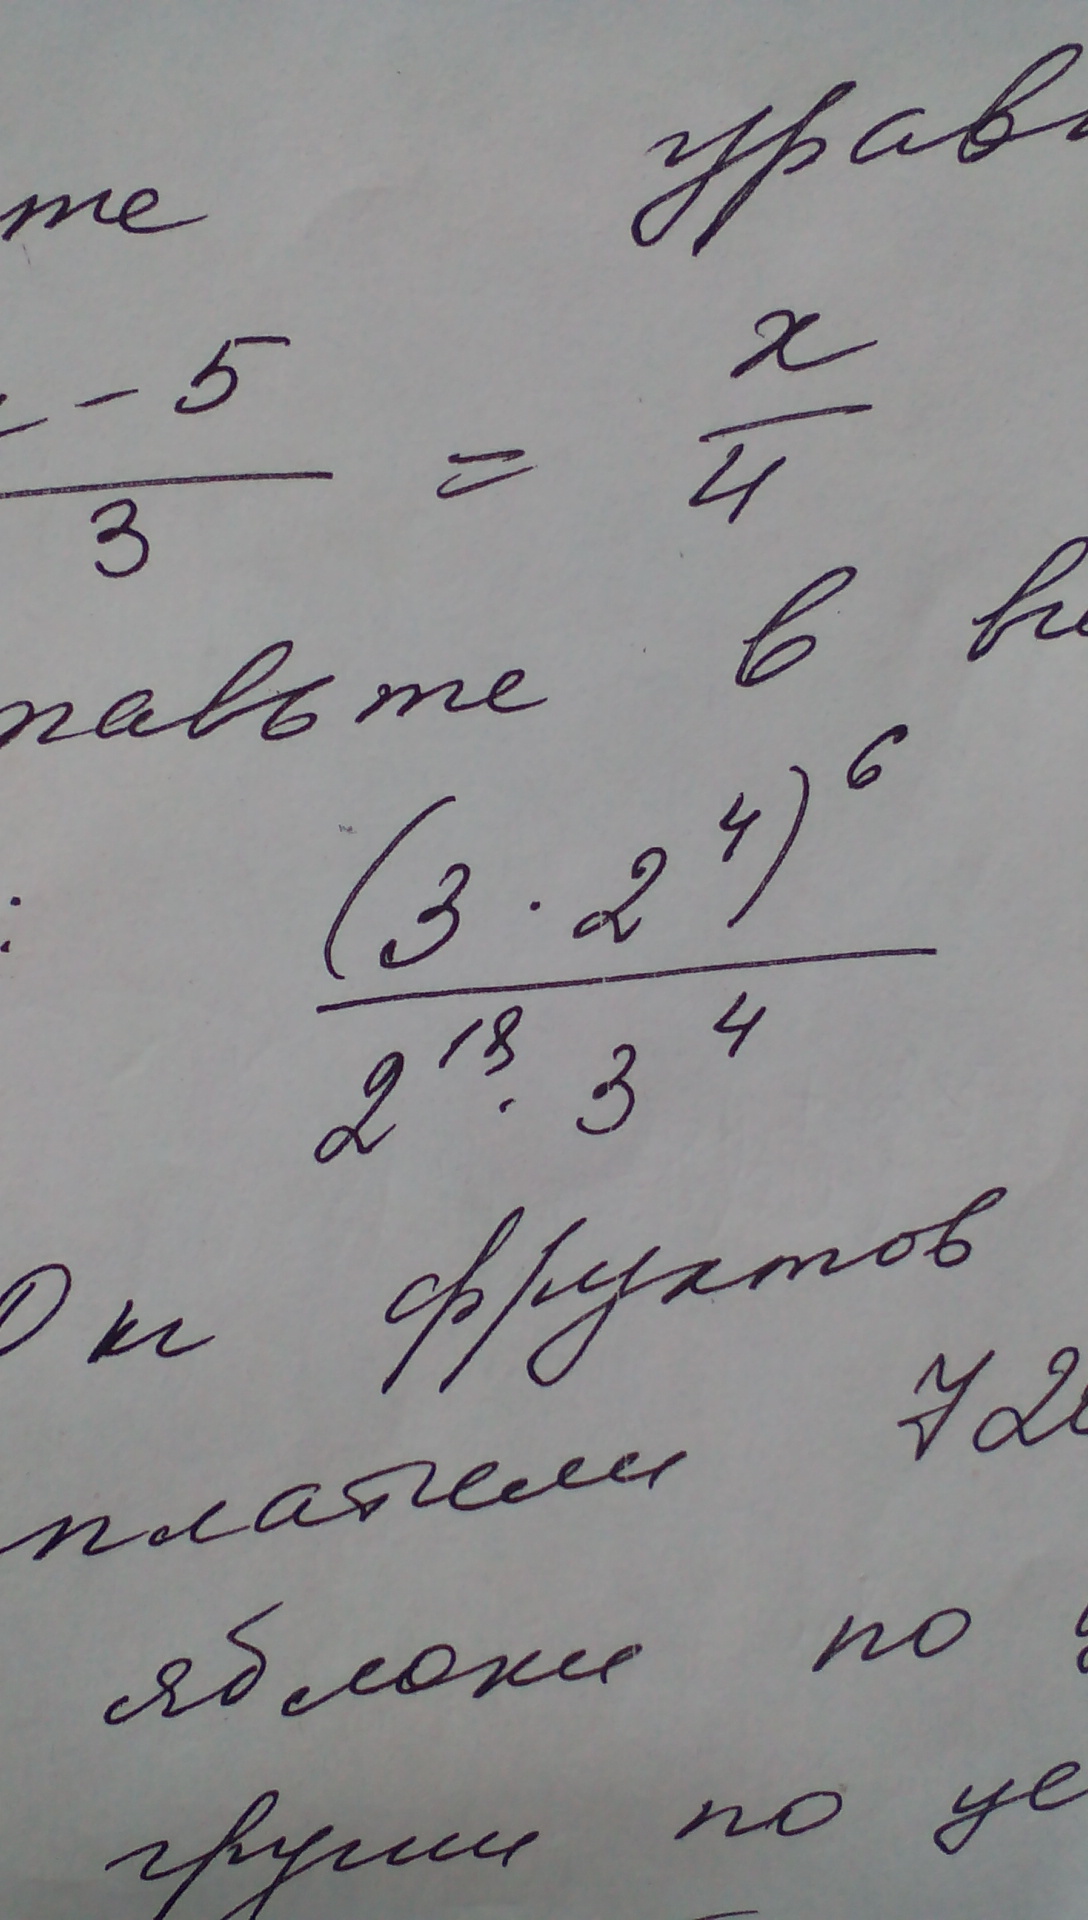 те урав
- 5 / 3 = x / 4
тавьте в
: (3 · 2^4)^6 / 2^18 · 3^4
0 кг фруктов
платили 720
яблоки по
груши по це